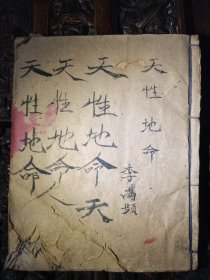 天性地命
李萬
天性地命天
天性地命人
天性地命